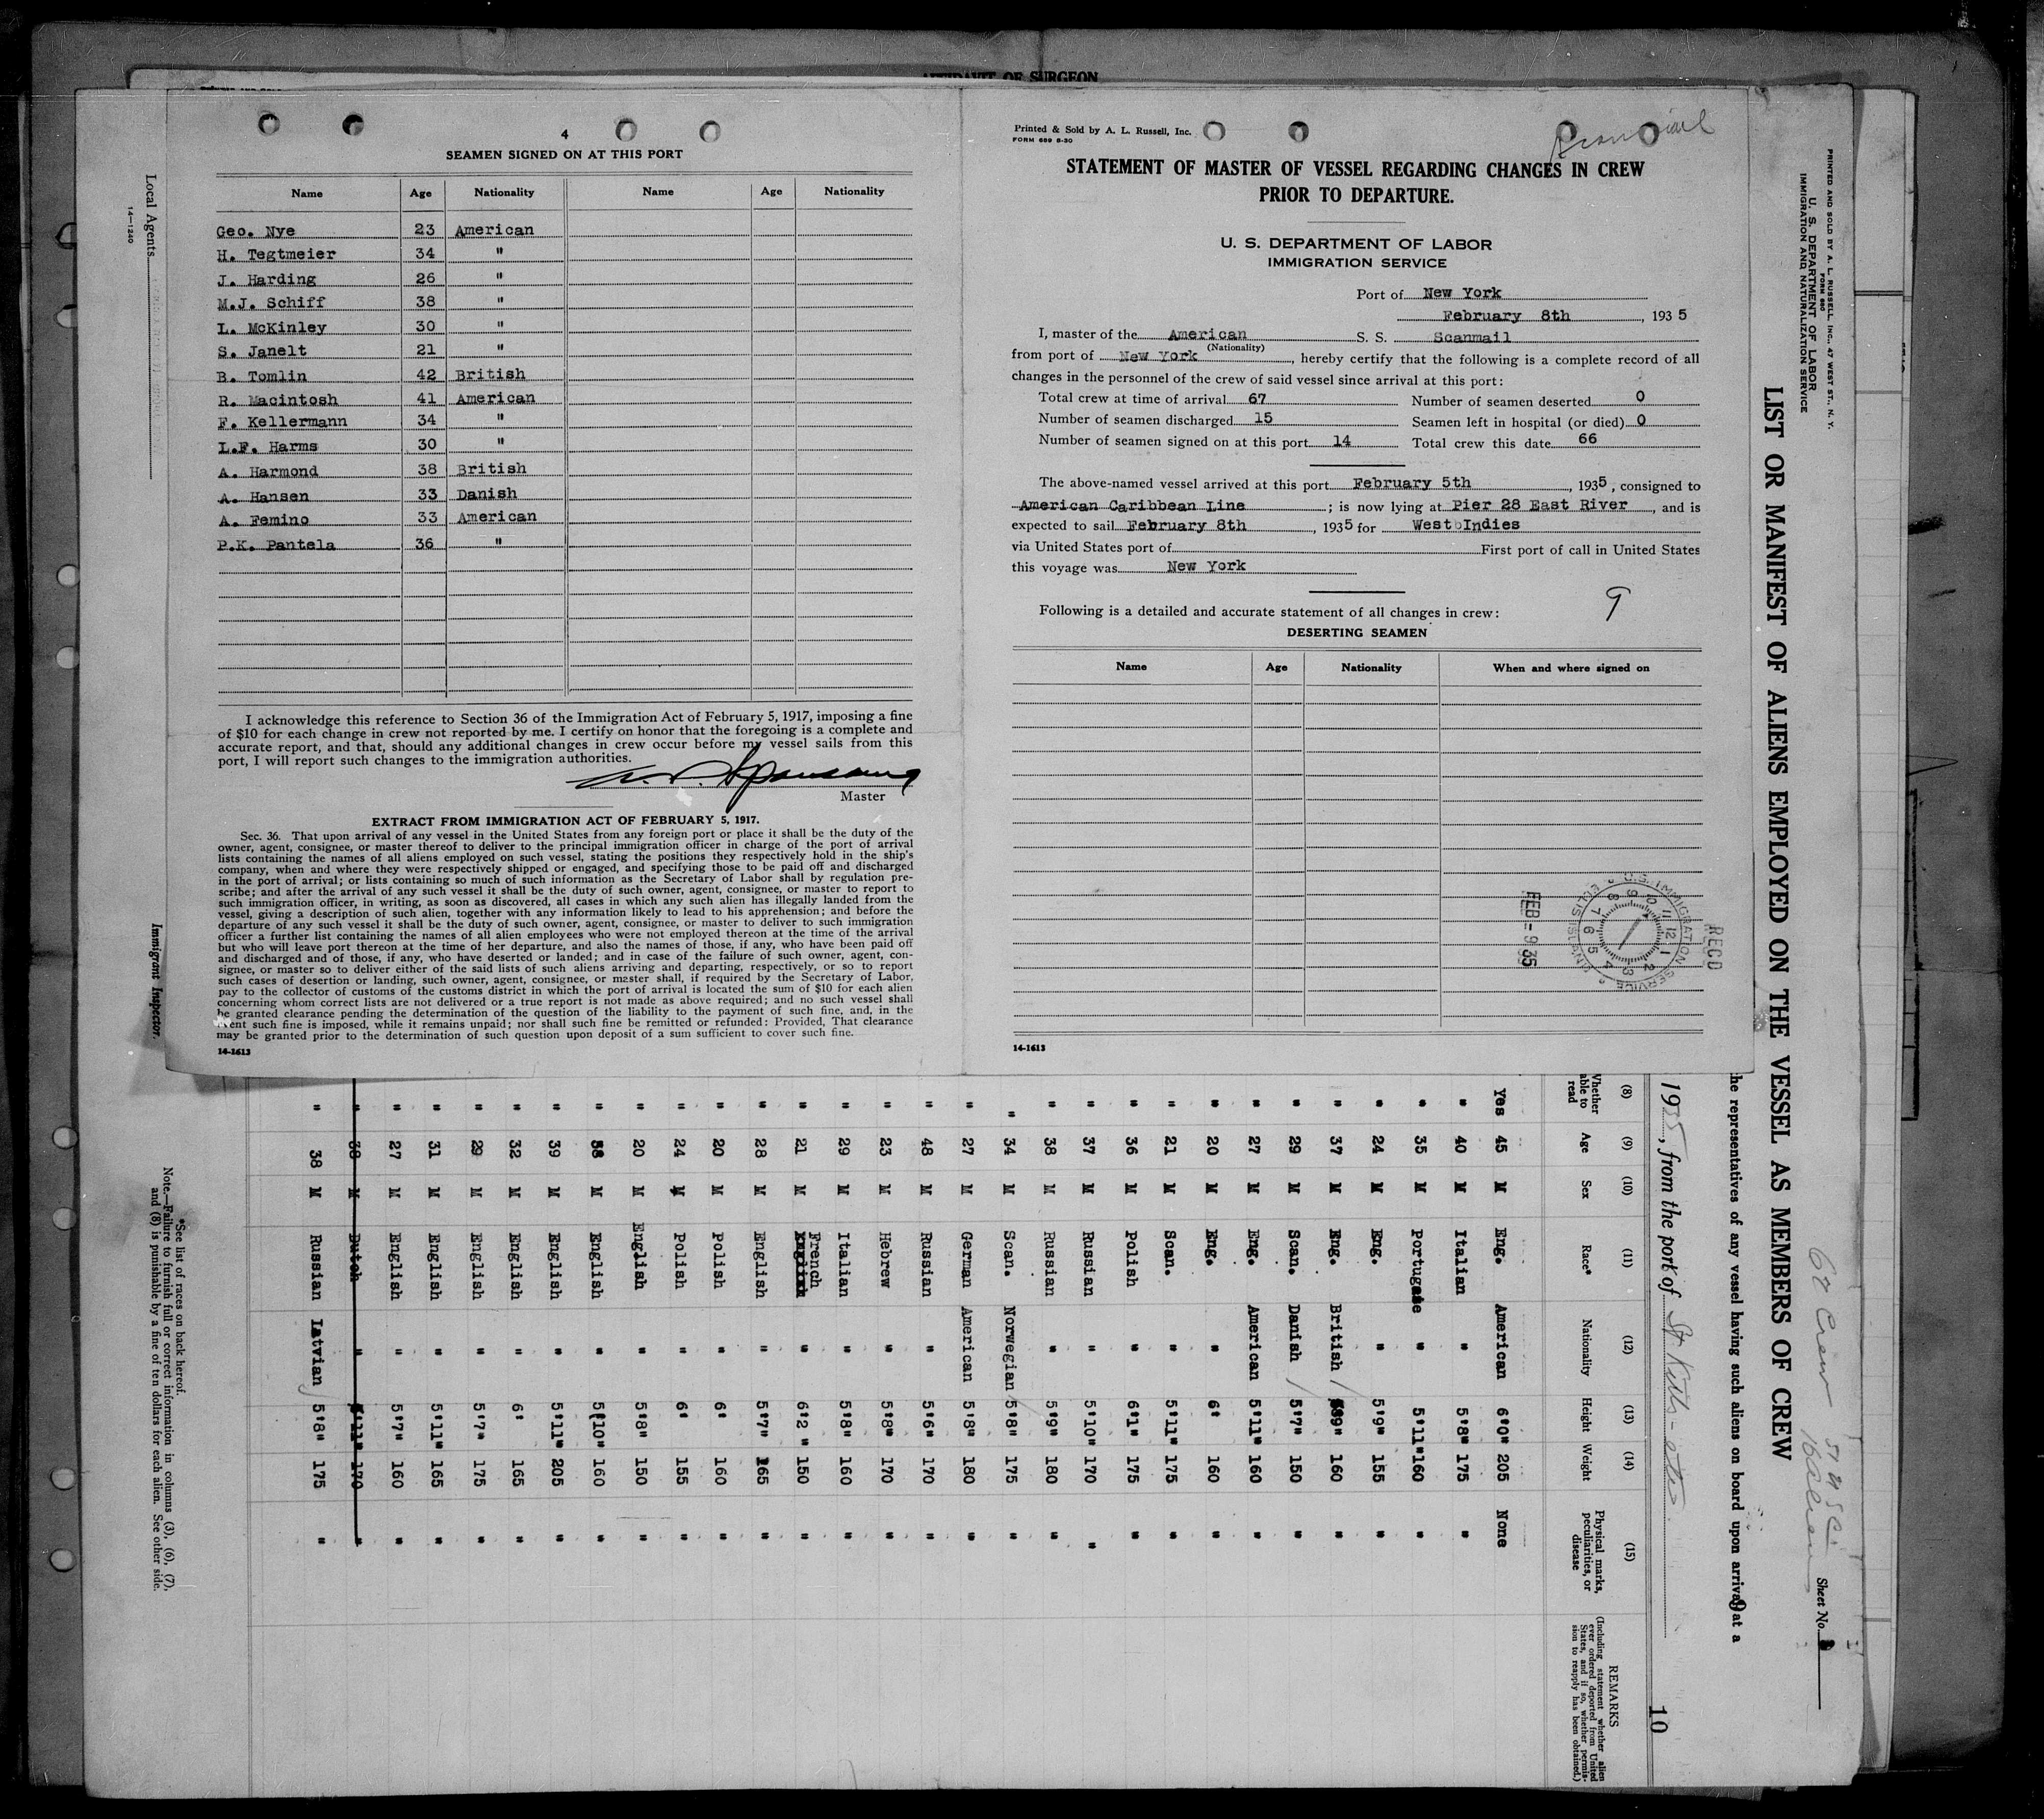 AFFIDAVIT OF SURGEON
4
SEAMEN SIGNED ON AT THIS PORT
Name Age Nationality Name Age Nationality
Geo. Nye 23 American
H. Tegtmeier 34 "
J. Harding 26 "
M.J. Schiff 38 "
L. McKinley 30 "
S. Janelt 21 "
B. Tomlin 42 British
R. Macintosh 41 American
F. Kellermann 34 "
L.F. Harms 30 "
A. Harmond 38 British
A. Hansen 33 Danish
A. Femino 33 American
P.K. Pantela 36 "
I acknowledge this reference to Section 36 of the Immigration Act of February 5, 1917, imposing a fine
of $10 for each change in crew not reported by me. I certify on honor that the foregoing is a complete and
accurate report, and that, should any additional changes in crew occur before my vessel sails from this
port, I will report such changes to the immigration authorities.
Master
EXTRACT FROM IMMIGRATION ACT OF FEBRUARY 5, 1917.
Sec. 36. That upon arrival of any vessel in the United States from any foreign port or place it shall be the duty of the
owner, agent, consignee, or master thereof to deliver to the principal immigration officer in charge of the port of arrival
lists containing the names of all aliens employed on such vessel, stating the positions they respectively hold in the ship's
company, when and where they were respectively shipped or engaged, and specifying those to be paid off and discharged
in the port of arrival; or lists containing so much of such information as the Secretary of Labor shall by regulation pre-
scribe; and after the arrival of any such vessel it shall be the duty of such owner, agent, consignee, or master to report to
such immigration officer, in writing, as soon as discovered, all cases in which any such alien has illegally landed from the
vessel, giving a description of such alien, together with any information likely to lead to his apprehension; and before the
departure of any such vessel it shall be the duty of such owner, agent, consignee, or master to deliver to such immigration
officer a further list containing the names of all alien employees who were not employed thereon at the time of the arrival
but who will leave port thereon at the time of her departure, and also the names of those, if any, who have been paid off
and discharged and of those, if any, who have deserted or landed; and in case of the failure of such owner, agent, con-
signee, or master so to deliver either of the said lists of such aliens arriving and departing, respectively, or so to report
such cases of desertion or landing, such owner, agent, consignee, or master shall, if required by the Secretary of Labor,
pay to the collector of customs of the customs district in which the port of arrival is located the sum of $10 for each alien
concerning whom correct lists are not delivered or a true report is not made as above required; and no such vessel shall
be granted clearance pending the determination of the question of the liability to the payment of such fine, and, in the
event such fine is imposed, while it remains unpaid; nor shall such fine be remitted or refunded: Provided, That clearance
may be granted prior to the determination of such question upon deposit of a sum sufficient to cover such fine.
14-1613
Printed & Sold by A. L. Russell, Inc.
FORM 689 8-30
Scanmail
STATEMENT OF MASTER OF VESSEL REGARDING CHANGES IN CREW
PRIOR TO DEPARTURE.
U. S. DEPARTMENT OF LABOR
IMMIGRATION SERVICE
Port of New York
February 8th, 1935
I, master of the American S. S. Scanmail
(Nationality)
from port of New York, hereby certify that the following is a complete record of all
changes in the personnel of the crew of said vessel since arrival at this port:
Total crew at time of arrival 67 Number of seamen deserted 0
Number of seamen discharged 15 Seamen left in hospital (or died) 0
Number of seamen signed on at this port 14 Total crew this date 66
The above-named vessel arrived at this port February 5th, 1935, consigned to
American Caribbean Line; is now lying at Pier 28 East River, and is
expected to sail February 8th, 1935 for West Indies
via United States port of First port of call in United States
this voyage was New York
9
Following is a detailed and accurate statement of all changes in crew:
DESERTING SEAMEN
Name Age Nationality When and where signed on
REC'D
U.S. IMMIGRATION SERVICE ELLIS ISLAND
FEB - 9 35
14-1613
Local Agents
14-1240
Immigrant Inspector.
PRINTED AND SOLD BY A. L. RUSSELL, INC., 47 WEST ST., N. Y.
FORM 680
U. S. DEPARTMENT OF LABOR
IMMIGRATION AND NATURALIZATION SERVICE
67 Crew
16 aliens
Sheet No.
LIST OR MANIFEST OF ALIENS EMPLOYED ON THE VESSEL AS MEMBERS OF CREW
the representatives of any vessel having such aliens on board upon arrival at a
1935, from the port of St Kitts - etc
10
(8) Whether able to read (9) Age (10) Sex (11) Race* (12) Nationality (13) Height (14) Weight (15) Physical marks, peculiarities, or disease REMARKS (Including statement whether alien ever ordered deported from United States, and if so, whether permission to reapply has been obtained.)
Yes 45 M Eng. American 6'0" 205 None
" 40 M Italian " 5'8" 175 "
" 35 M Portugese " 5'11" 160 "
" 24 M Eng. " 5'9" 155 "
" 37 M Eng. British 5'9" 160 "
" 29 M Scan. Danish 5'7" 150 "
" 27 M Eng. American 5'11" 160 "
" 20 M Eng. " 6' 160 "
" 21 M Scan. " 5'11" 175 "
" 36 M Polish " 6'1" 175 "
" 37 M Russian " 5'10" 170 "
" 38 M Russian " 5'9" 180 "
" 34 M Scan. Norwegian 5'8" 175 "
" 27 M German American 5'8" 180 "
" 48 M Russian " 5'6" 170 "
" 23 M Hebrew " 5'8" 170 "
" 29 M Italian " 5'8" 160 "
" 21 M English French " 6'2" 150 "
" 28 M English " 5'7" 165 "
" 20 M Polish " 6' 160 "
" 24 M Polish " 6' 155 "
" 20 M English " 5'8" 150 "
" 38 M English " 5'10" 160 "
" 39 M English " 5'11" 205 "
" 32 M English " 6' 165 "
" 29 M English " 5'7" 175 "
" 31 M English " 5'11" 165 "
" 27 M English " 5'7" 160 "
" 38 M Dutch " 5'11" 170 "
" 38 M Russian Latvian 5'8" 175 "
*See list of races on back hereof.
Note.—Failure to furnish full or correct information in columns (3), (6), (7),
and (8) is punishable by a fine of ten dollars for each alien. See other side.